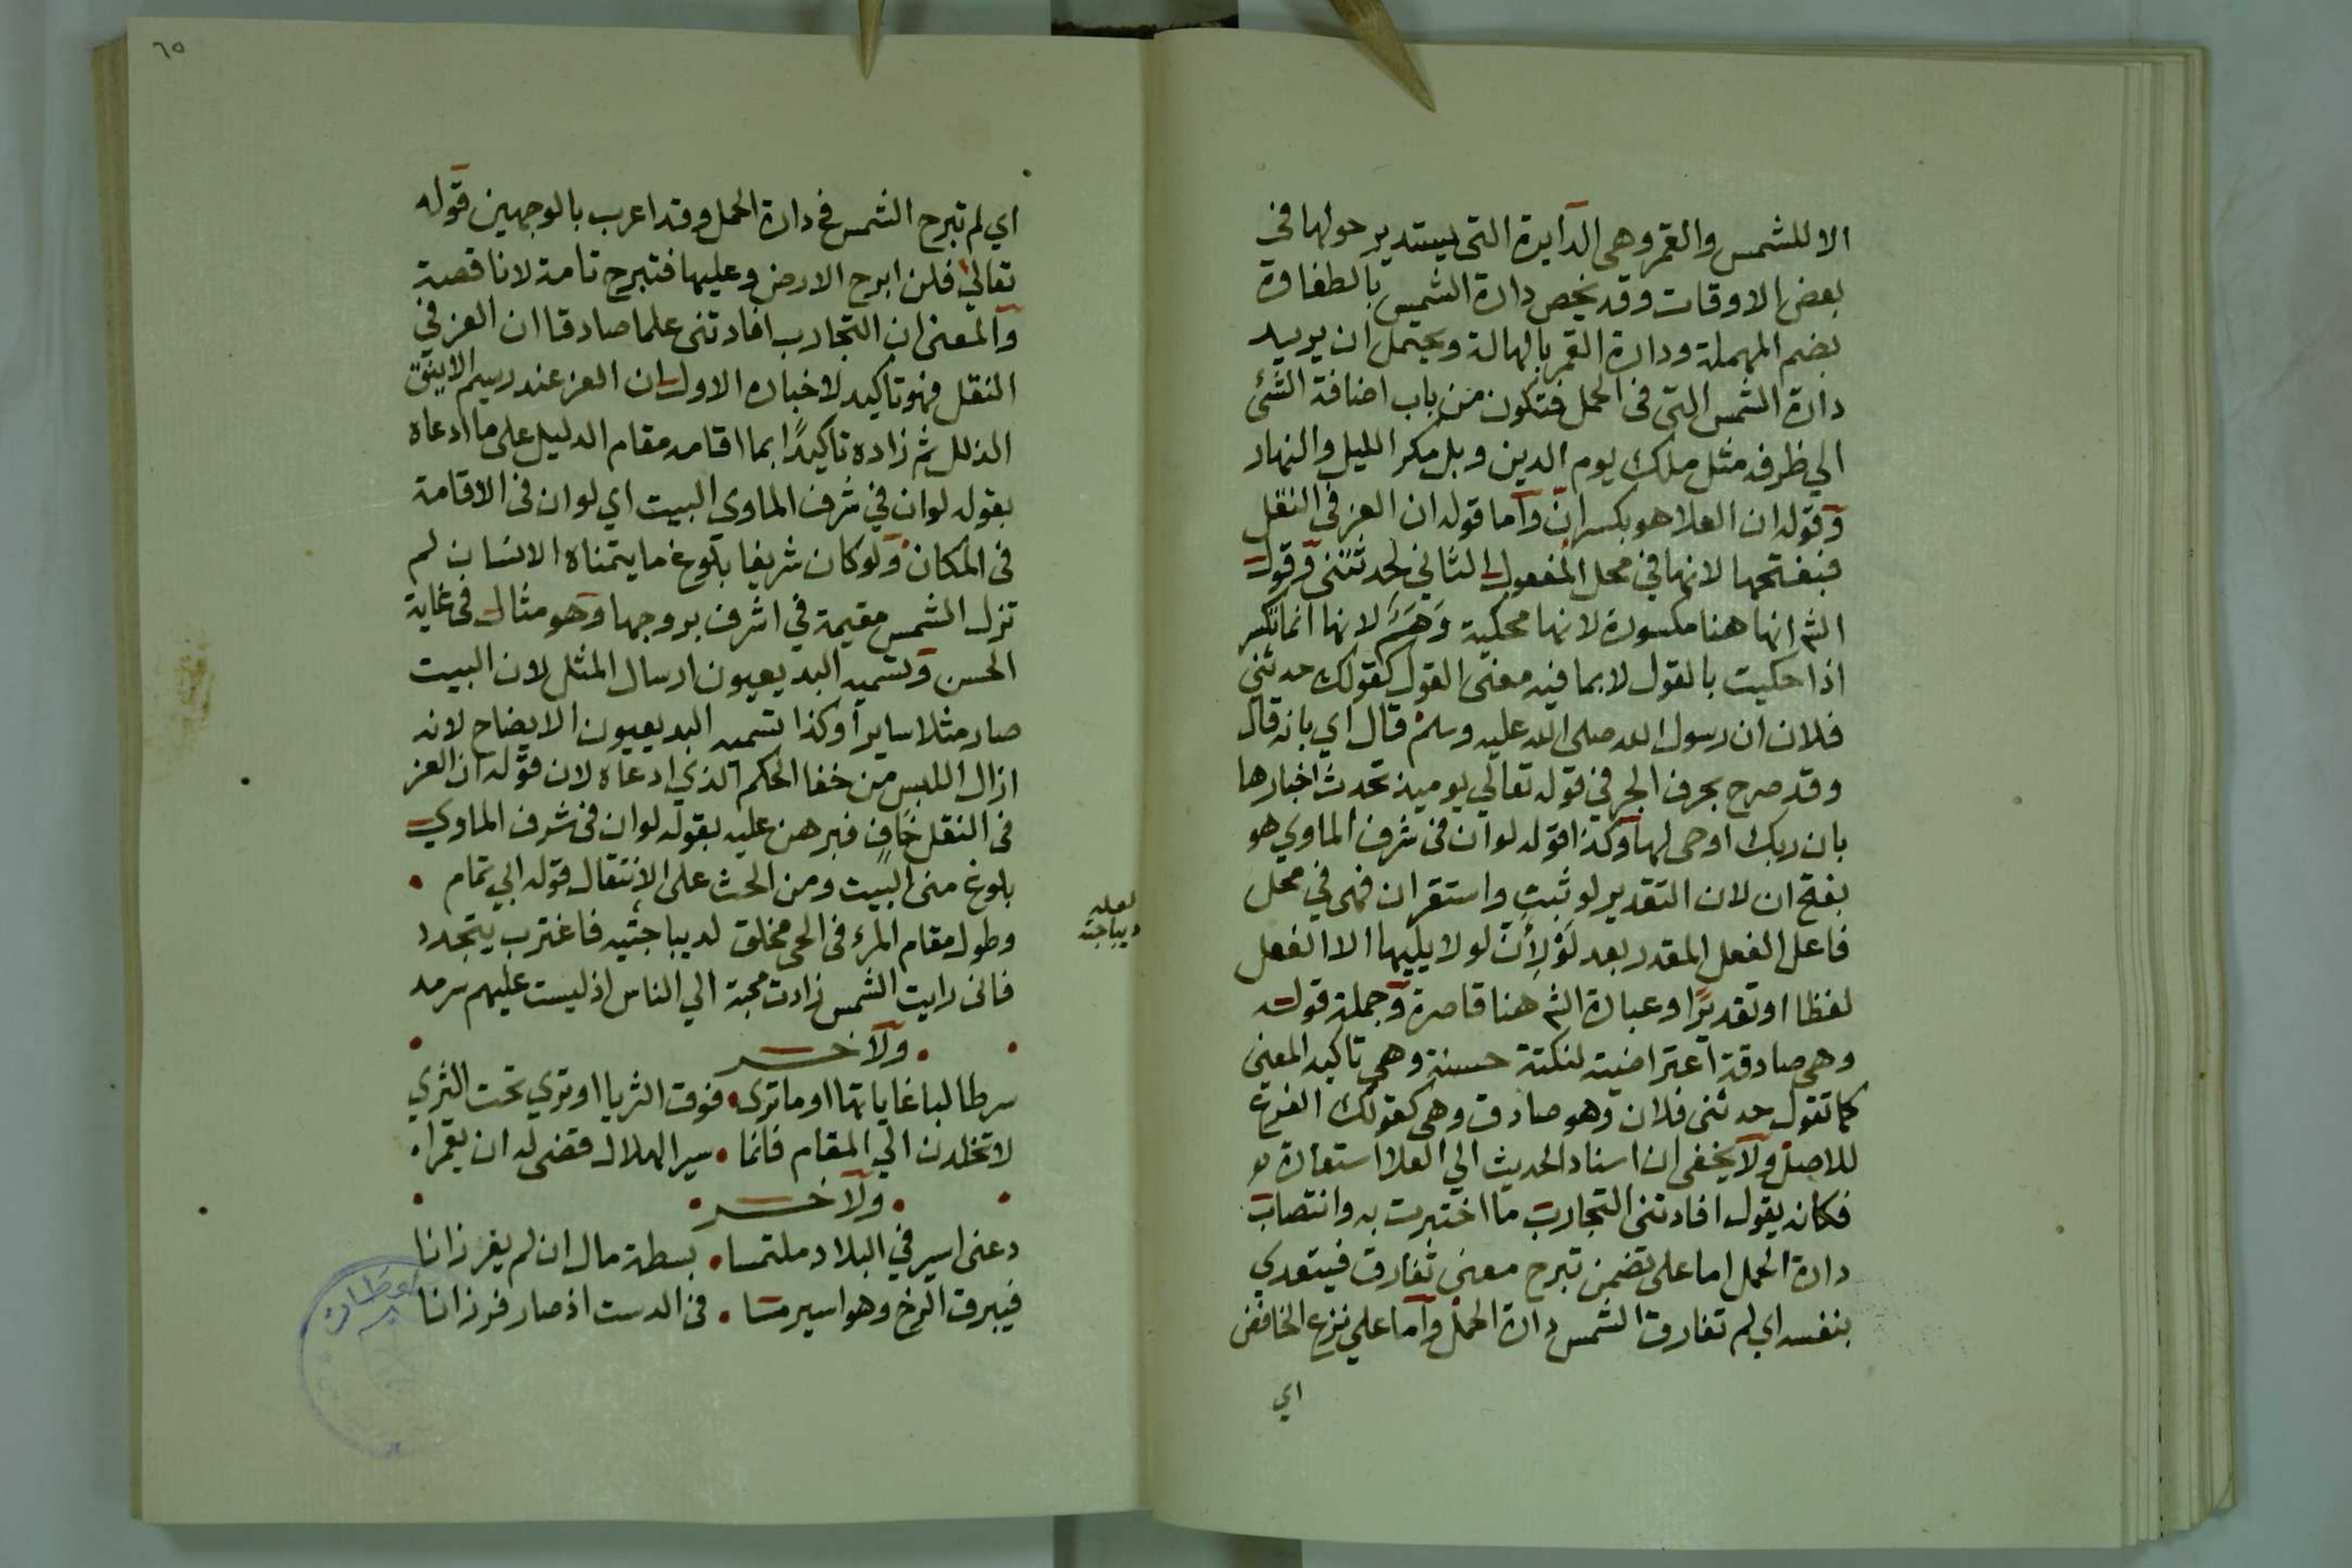 الا للشمس والقمر وهى الدايرة التى يستدير حولها في
بعض الاوقات وقد يخص دارة الشمس بالطفاوة
بضم المهملة ودارة القمر بالهالة ويحتمل ان يريد
دارة الشمس التى فى الحمل فتكون من باب اضافة الشئ
الي ظرفه مثل ملك يوم الدين وبل مكر الليل والنهار
وقوله ان العلا هو بكسر انّ واما قوله ان العز فى النقل
فبفتحها لانها في محل المفعول الثاني لحدثتنى وقول
الشم انها هنا مكسورة لانها محكية وَهَمٌ لانها انما تكسر
اذا حكيت بالقول لا بما فيه معنى القول كقولك حدثنى
فلان ان رسول الله صلى الله عليه وسلم قال اي بانه قال
وقد صرح بحرف الجر في قوله تعالي يوميذ تحدث اخبارها
بان ربك اوحى لها وكذا قوله لو ان فى شرف الماوي هو
بفتح ان لان التقدير لو ثبت واستقر ان فهى في محل
فاعل الفعل المقدر بعد لَوْ لِأَنّ لو لا يليها الا الفعل
لفظا او تقديرًا وعبارة الشم هنا قاصرة وجملة قوله
وهى صادقة اعتراضية لنكتة حسنة وهى تاكيد المعنى
كما تقول حدثنى فلان وهو صادق وهى كقولك الفرع
للاصل ولا يخفى ان اسناد الحديث الي العلا استعارة
فكانه يقول افادتنى التجارب ما اختبرت به وانتصاب
دارة الحمل اما على تضمن تبرح معنى تفارق فيتعدي
بنفسه اي لم تفارق الشمس دارة الحمل واما علي نزع الخافض
اي
٦٥
اي لم تبرح الشمس في دارة الحمل وقد اعرب بالوجهين قوله
تعالي فلن ابرح الارض وعليها فتبرح تامة لا ناقصة
والمعنى ان التجارب افادتنى علما صادقا ان العز في
النقل فهو تاكيد لاخباره الاول ان العز عند رسيم الاينق
الذلل ثم زاده تاكيدًا بما اقامه مقام الدليل على ما ادعاه
بقوله لو ان في شرف الماوى البيت اي لو ان فى الاقامة
فى المكان ولو كان شريفا بلوغ ما يتمناه الانسان لم
تزل الشمس مقيمة في اشرف بروجها وهو مثال فى غاية
الحسن وتسميه البديعيون ارسال المثل لان البيت
صار مثلا سايرا وكذا تسميه البديعيون الايضاح لانه
ازال اللبس من خفا الحكم الذي ادعاه لان قوله ان العز
فى النقل خافٍ فبرهن عليه بقوله لو ان فى شرف الماوي
بلوغ منى البيت ومن الحث على الانتقال قوله ابي تمام
وطول مقام المرء فى الحى مخلق لديباجتيه فاغترب يتجدد
لعله
ديباجته
فانى رايت الشمس زادت محبة الي الناس اذ ليست عليهم سرمد
ولآخر
سر طالبا غاياتها اوما ترى فوق الثريا او تري تحت الثري
لا تخلدن الي المقام فانما سير الهلال قضى له ان يقمرا
ولآخر
دعنى اسير في البلاد ملتمسا بسطة مال ان لم يفر زانا
فيبرق الرخ وهو اسير مسا فى الدست اذ صار فرزانا